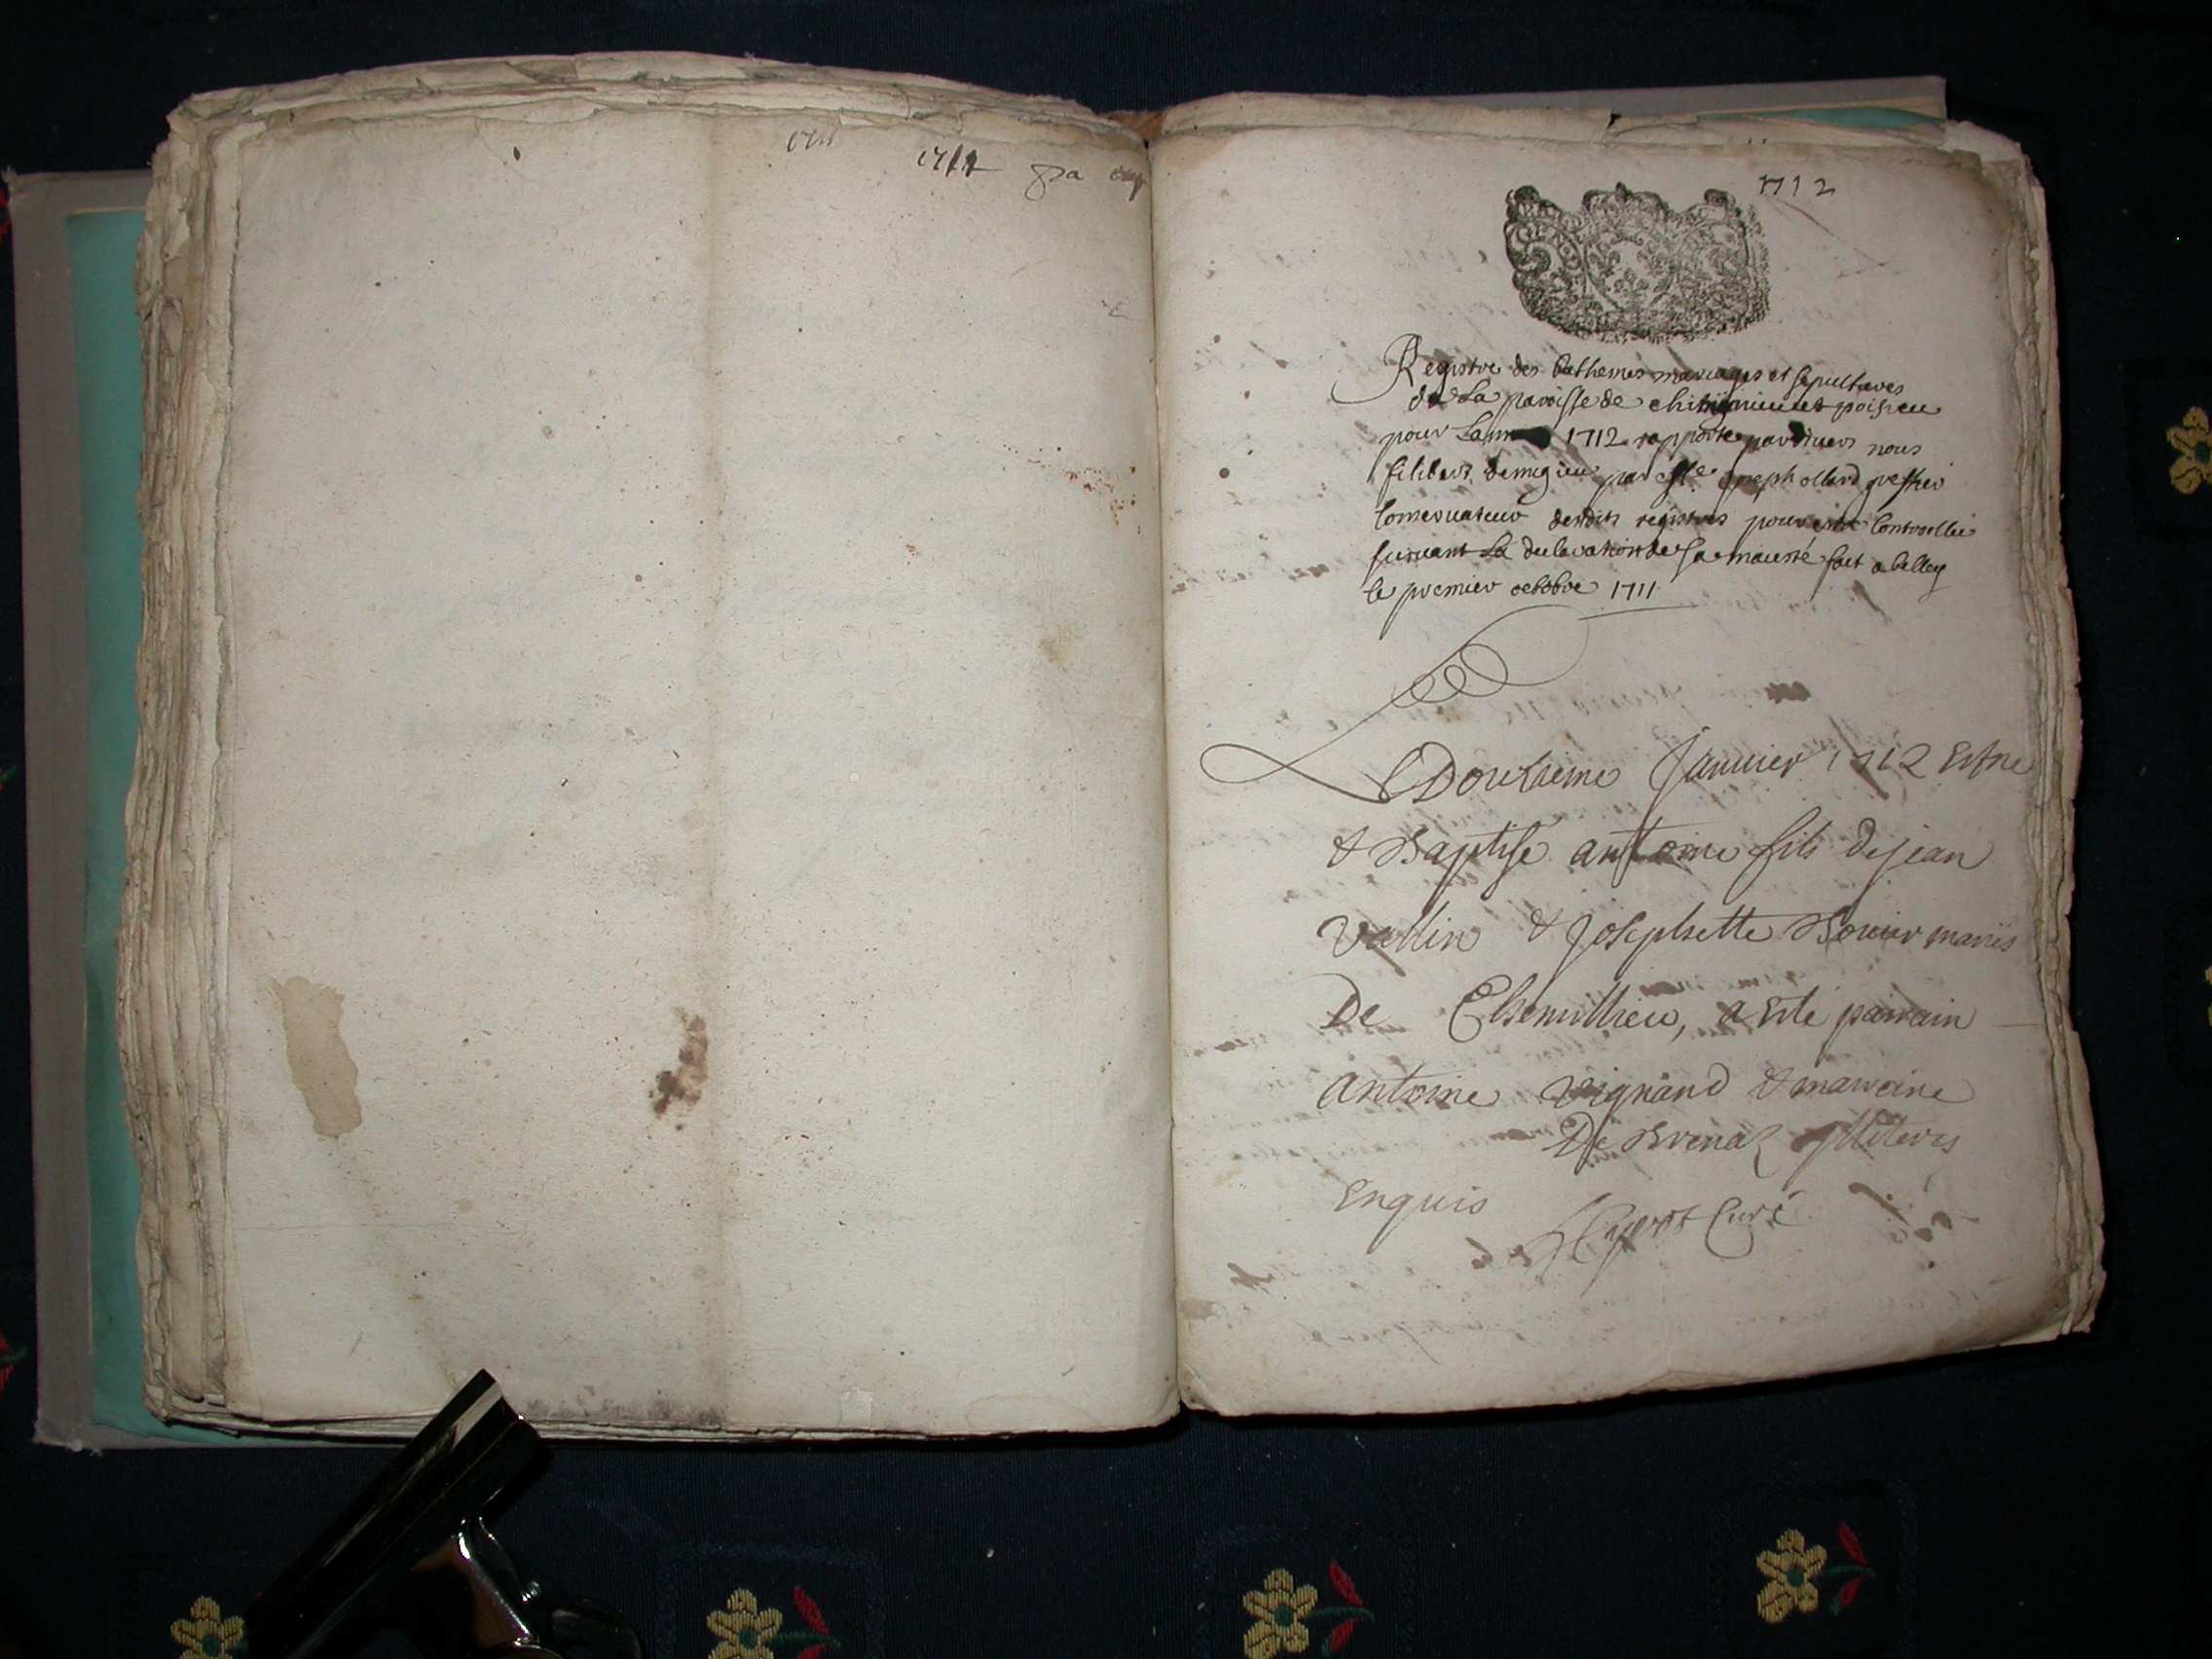 1711
1711
1712
Registre des bathemes mariages et sepultures
de La paroisse de poisieu
pour Lanne 1712 nous
filibert demigieu par Joseph ollard greffier
Conservateur desdits registres pour estre Controollee
suivant La declaration de sa maiesté fait a belley
le premier octobre 1711
Douzieme Januier 1712 Est ne
& Baptisé antoine fils de jean
Vallin & Josephette Bouier mariés
De Chemillieu, a esté parrain
antoine vignand & marreine
De Brenaz Illiteres
Enquis
Curé